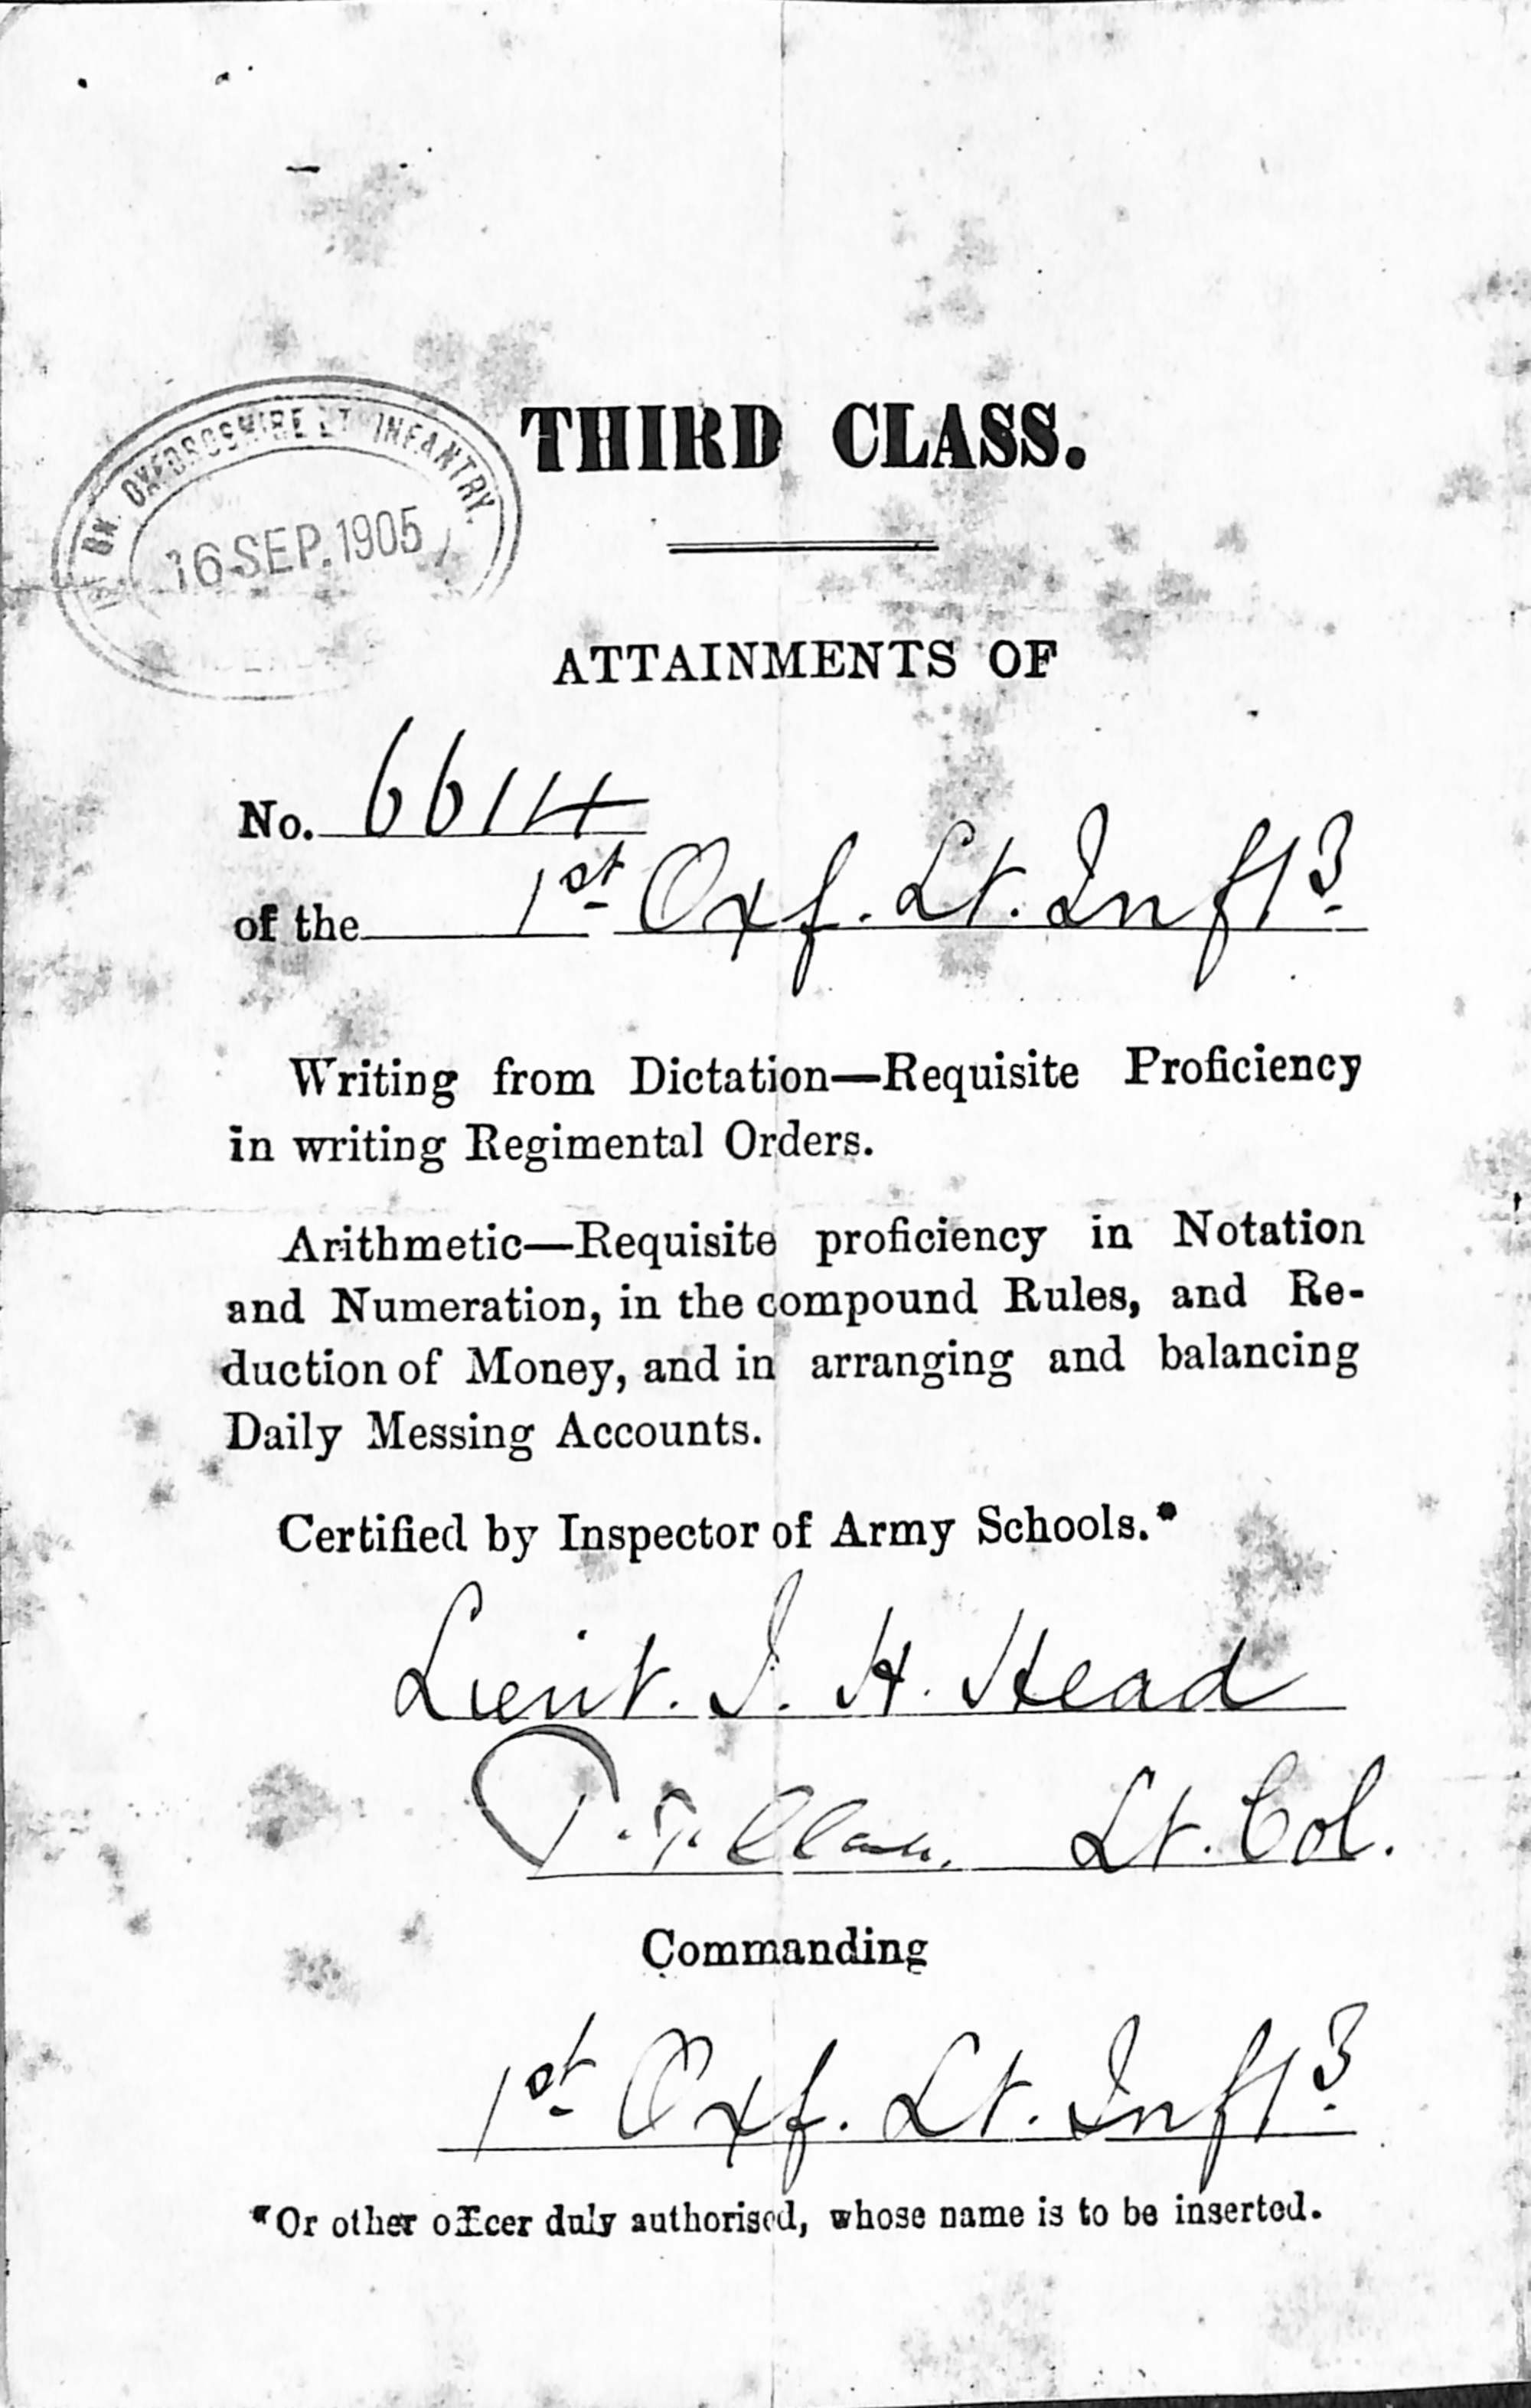 BN. OXFORDSHIRE LT INFANTRY.
16 SEP. 1905
THIRD CLASS.
ATTAINMENTS OF
No. 6614
of the 1st Oxf. Lt. Infty.
Writing from Dictation—Requisite Proficiency
in writing Regimental Orders.
Arithmetic—Requisite proficiency in Notation
and Numeration, in the compound Rules, and Re-
duction of Money, and in arranging and balancing
Daily Messing Accounts.
Certified by Inspector of Army Schools.*
Lieut. J. H. Head
Lt. Col.
Commanding
1st Oxf. Lt. Infty.
*Or other officer duly authorised, whose name is to be inserted.